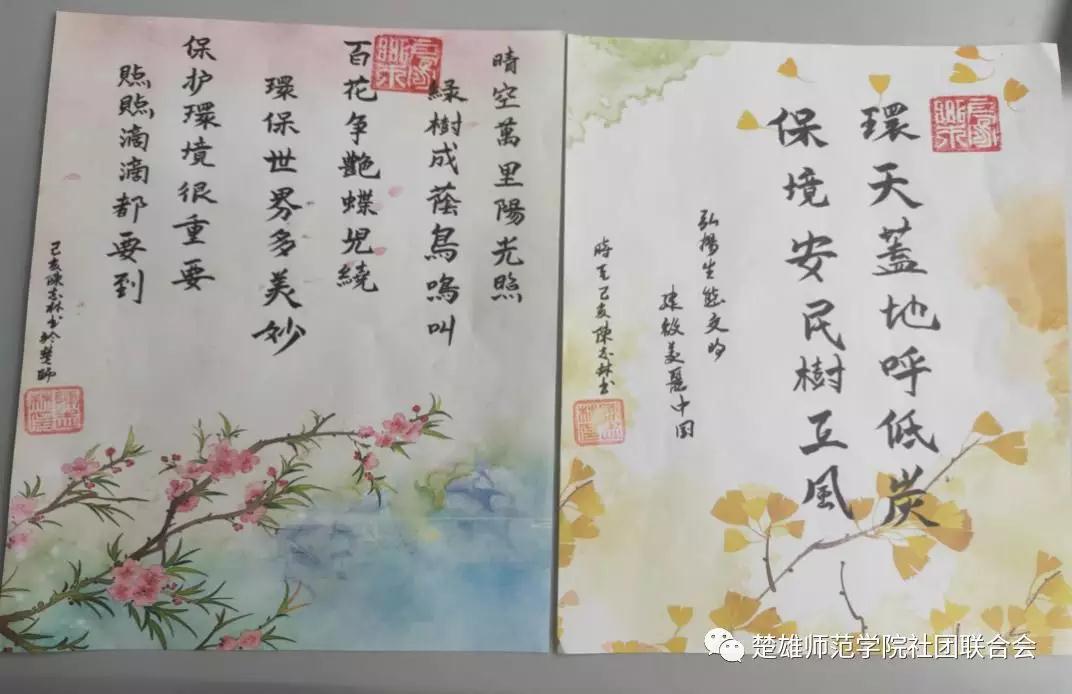 晴空萬里陽光照
綠樹成蔭鳥鳴叫
百花争艷蝶兒繞
環保世界多美妙
保护環境很重要
點點滴滴都要到
己亥陳志林书於楚師
環天蓋地呼低炭
保境安民樹正風
弘揚生態文明
建設美麗中国
時在己亥陳志林书
楚雄师范学院社团联合会